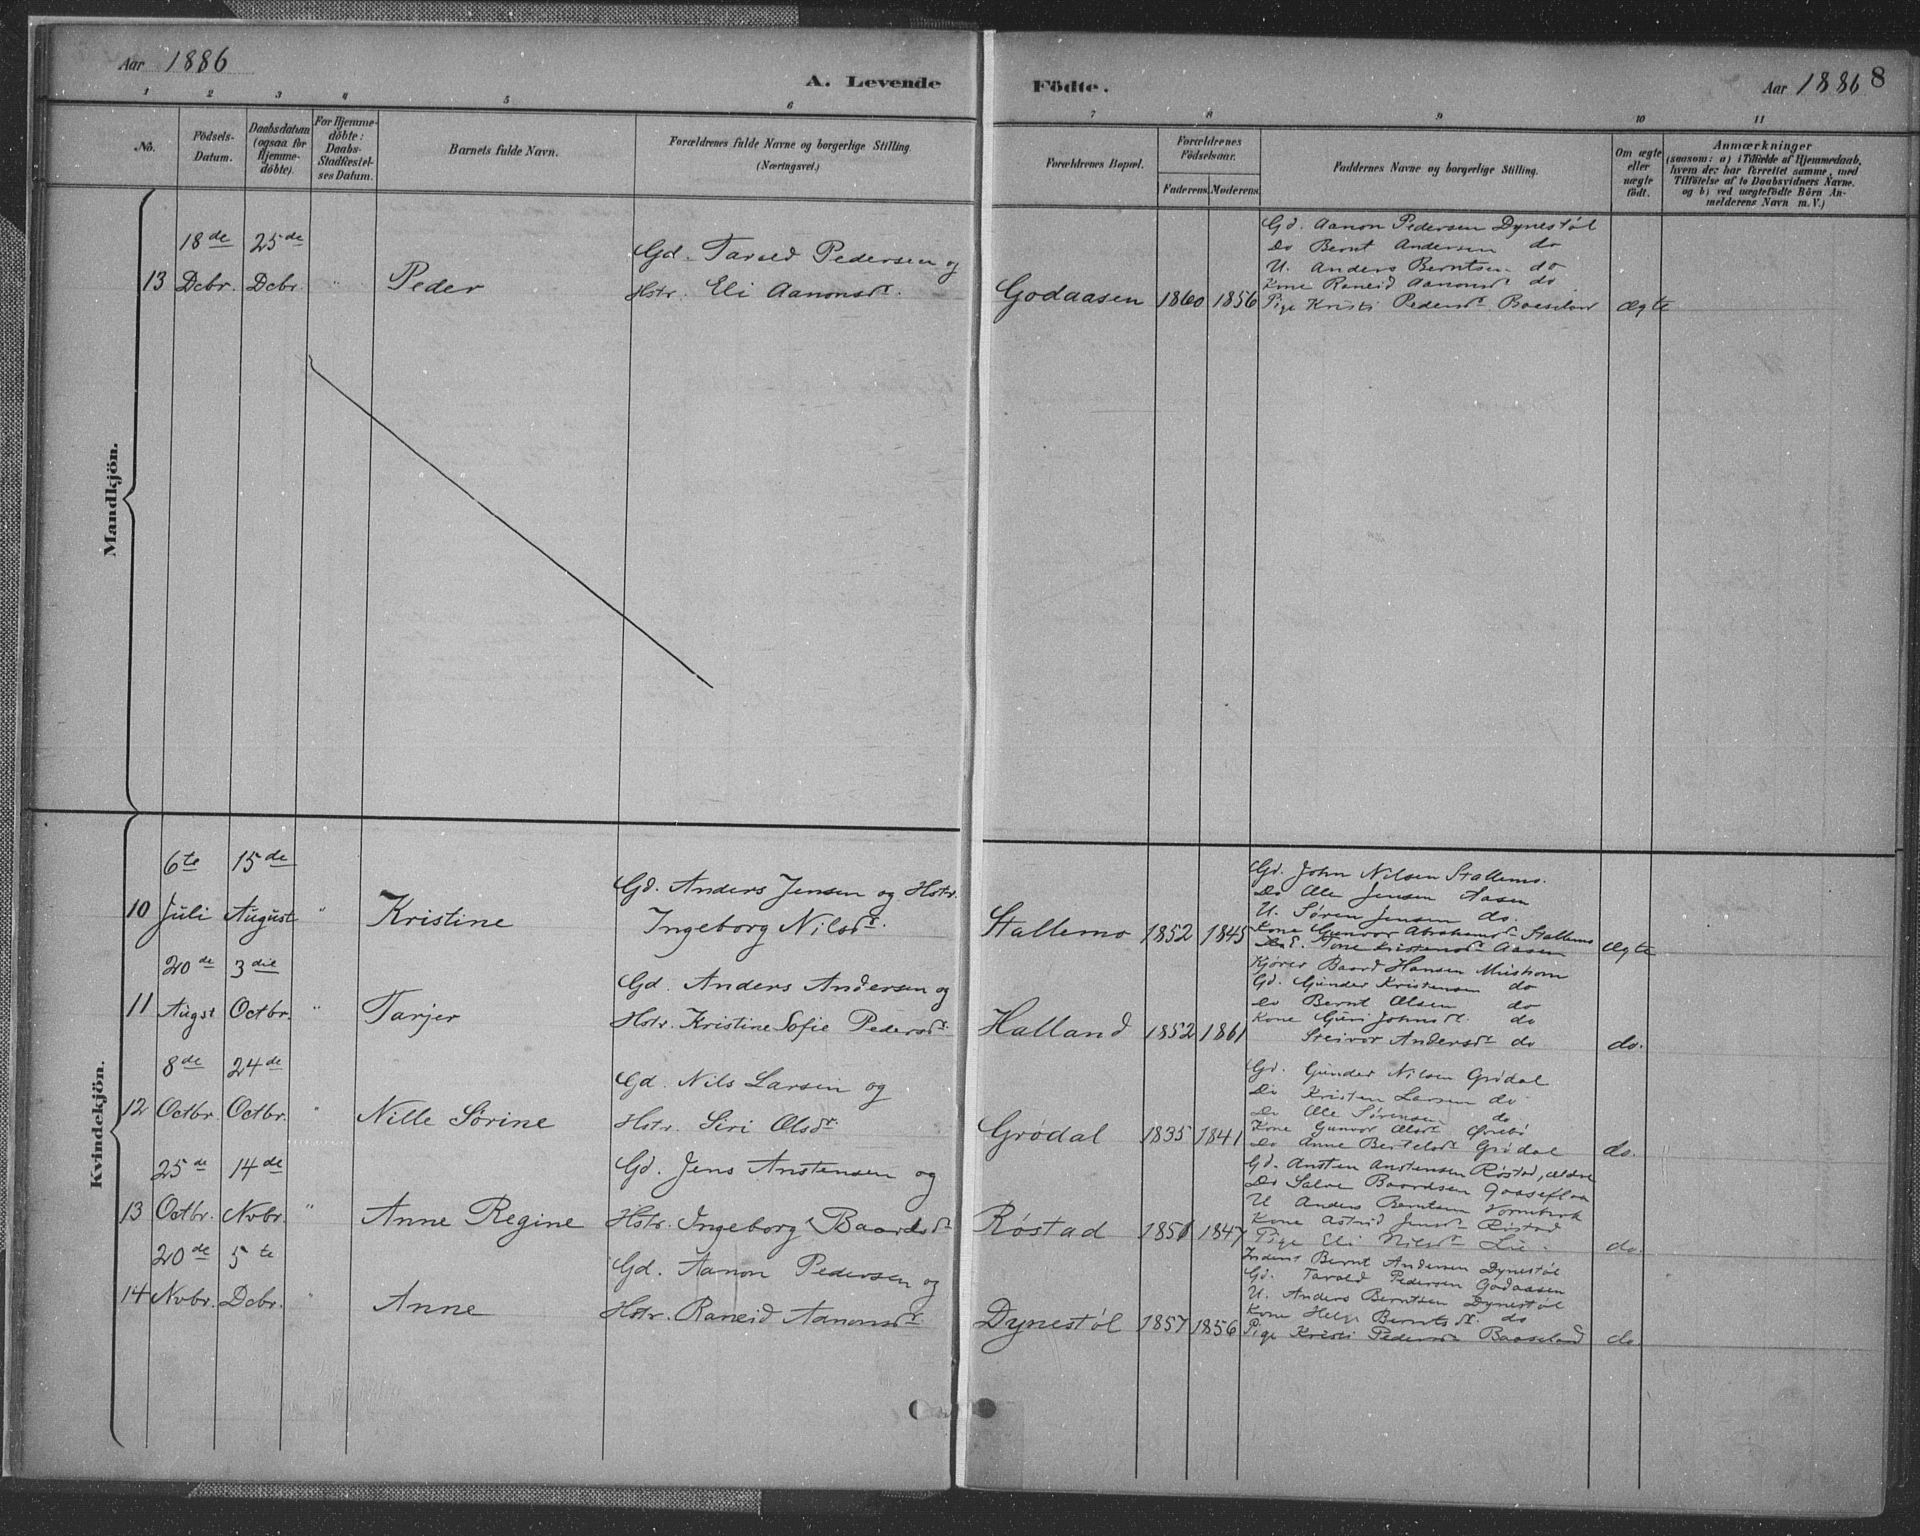 Aar 1886
A. Levende Födte.
Aar 1886 8
1 2 3 4 5 6 7 8 9 10 11
No.
Födsels-Datum.
Daabsdatum (ogsaa for Hjemmedöbte).
For Hjemmedöbte: Daabs-Stadfæstelses Datum.
Barnets fulde Navn.
Forældrenes fulde Navne og borgerlige Stilling
(Næringsvei.)
Forældrenes Bopæl.
Forældrenes Födselsaar.
Faderens. Moderens.
Faddernes Navne og borgerlige Stilling.
Om ægte eller uægte födt.
Anmærkninger
(saasom: a) i Tilfælde af Hjemmedaab,
hvem der har forrettet samme, med
Tilföielse af to Daabsvidners Navne,
og b) ved uægtefödte Börn An-
melderens Navn m.V.)
Mandkjön.
13 18de Dcbr. 25de Dcbr. " Peder
Gd. Tarald Pedersen og
Hstr. Eli Aanonsdr.
Godaasen 1860 1856
Gd. Aanon Pedersen Dynestøl
Do Bernt Andersen do
U. Anders Berntsen do
Kone Raneid Aanonsdr do
Pige Kristi Pedersdr. Baaseland
ægte
Kvindekjön.
10 6te Juli 15de August " Kristine
Gd. Anders Jensen og Hstr.
Ingeborg Nilsdr.
Stallemo 1852 1845
Gd. John Nilsen Stallemo.
Do Ole Jensen Aasen
U. Søren Jensen do.
Kone Gunvor Abrahamsdr Stallemo
Tone Kristensdr Aasen
ægte
11 20de Augst 3die Octbr. " Tarjer
Gd. Anders Andersen og
Hstr. Kristine Sofie Pedersdr.
Halland 1852 1861
Baard Hansen
Gd. Gunder Kristensen do
Do Bernt Olsen do
Kone Guri Johnsdr. do
Steivor Andersdr do
do.
12 8de Octbr. 24de Octbr. " Nille Sørine
Gd. Nils Larsen og
Hstr. Siri Olsdr.
Grødal 1835 1841
Gd. Gunder Nilsen Grødal
Do Kristen Larsen do
Do Ole Sørensen do
Kone Gunvor Olsdr Ørebø
Do Anne Bertelsdr Grødal
do.
13 25de Octbr. 14de Nvbr. " Anne Regine
Gd. Jens Anstensen og
Hstr. Ingeborg Baardsdr
Røstad 1851 1847
Gd. Ansten Anstensen Røstad, ældre
Do Salve Baardsen Gaaseflaa
U Anders Berntsen
Kone Astrid Jensdr Røstad
Pige Eli Nilsdr Lie.
do.
14 20de Nvbr. 5te Dcbr. " Anne
Gd. Aanon Pedersen og
Hstr. Raneid Aanonsdr.
Dynestøl 1857 1856
Inderst Bernt Andersen Dynestøl
Gd. Tarald Pedersen Godaasen
U. Anders Berntsen Dynestøl
Kone Helge Berntsdr. do
Pige Kristi Pedersdr Baaseland
do.